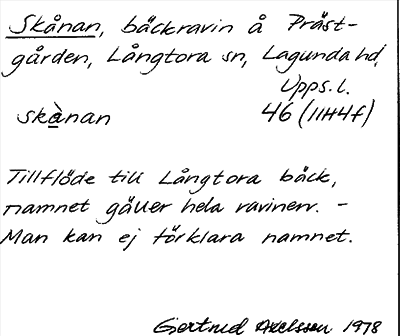 Skånan, bäckravin å Präst-
gården, Långtora sn, Lagunda hd,
Upps. l.
skànan 46 (11H4f)
Tillflöde till Långtora bäck,
namnet gäller hela ravinen. -
Man kan ej förklara namnet.
Gertrud Axelsson 1978